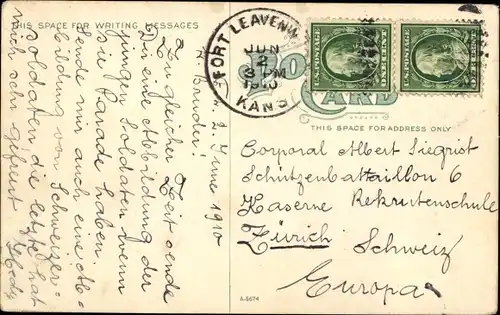 THIS SPACE FOR WRITING MESSAGES
2. June 1910
Bruder!
Zu gleicher Zeit sende
Dir eine Abbildung der
jungen Soldaten wenn
sie Parade haben.
Sende mir auch eine Ab-
bildung von Schweizer-
soldaten die letzte hat
mich sehr gefreut
FORT LEAVENW
JUN
2
PM
1910
KANS
U.S. POSTAGE
ONE CENT
U.S. POSTAGE
ONE CENT
CARD
THIS SPACE FOR ADDRESS ONLY
Corporal Albert Siegrist
Schützenbattaillon 6
Kaserne Rekrutenschule
Zürich Schweiz
Europa
A-5674